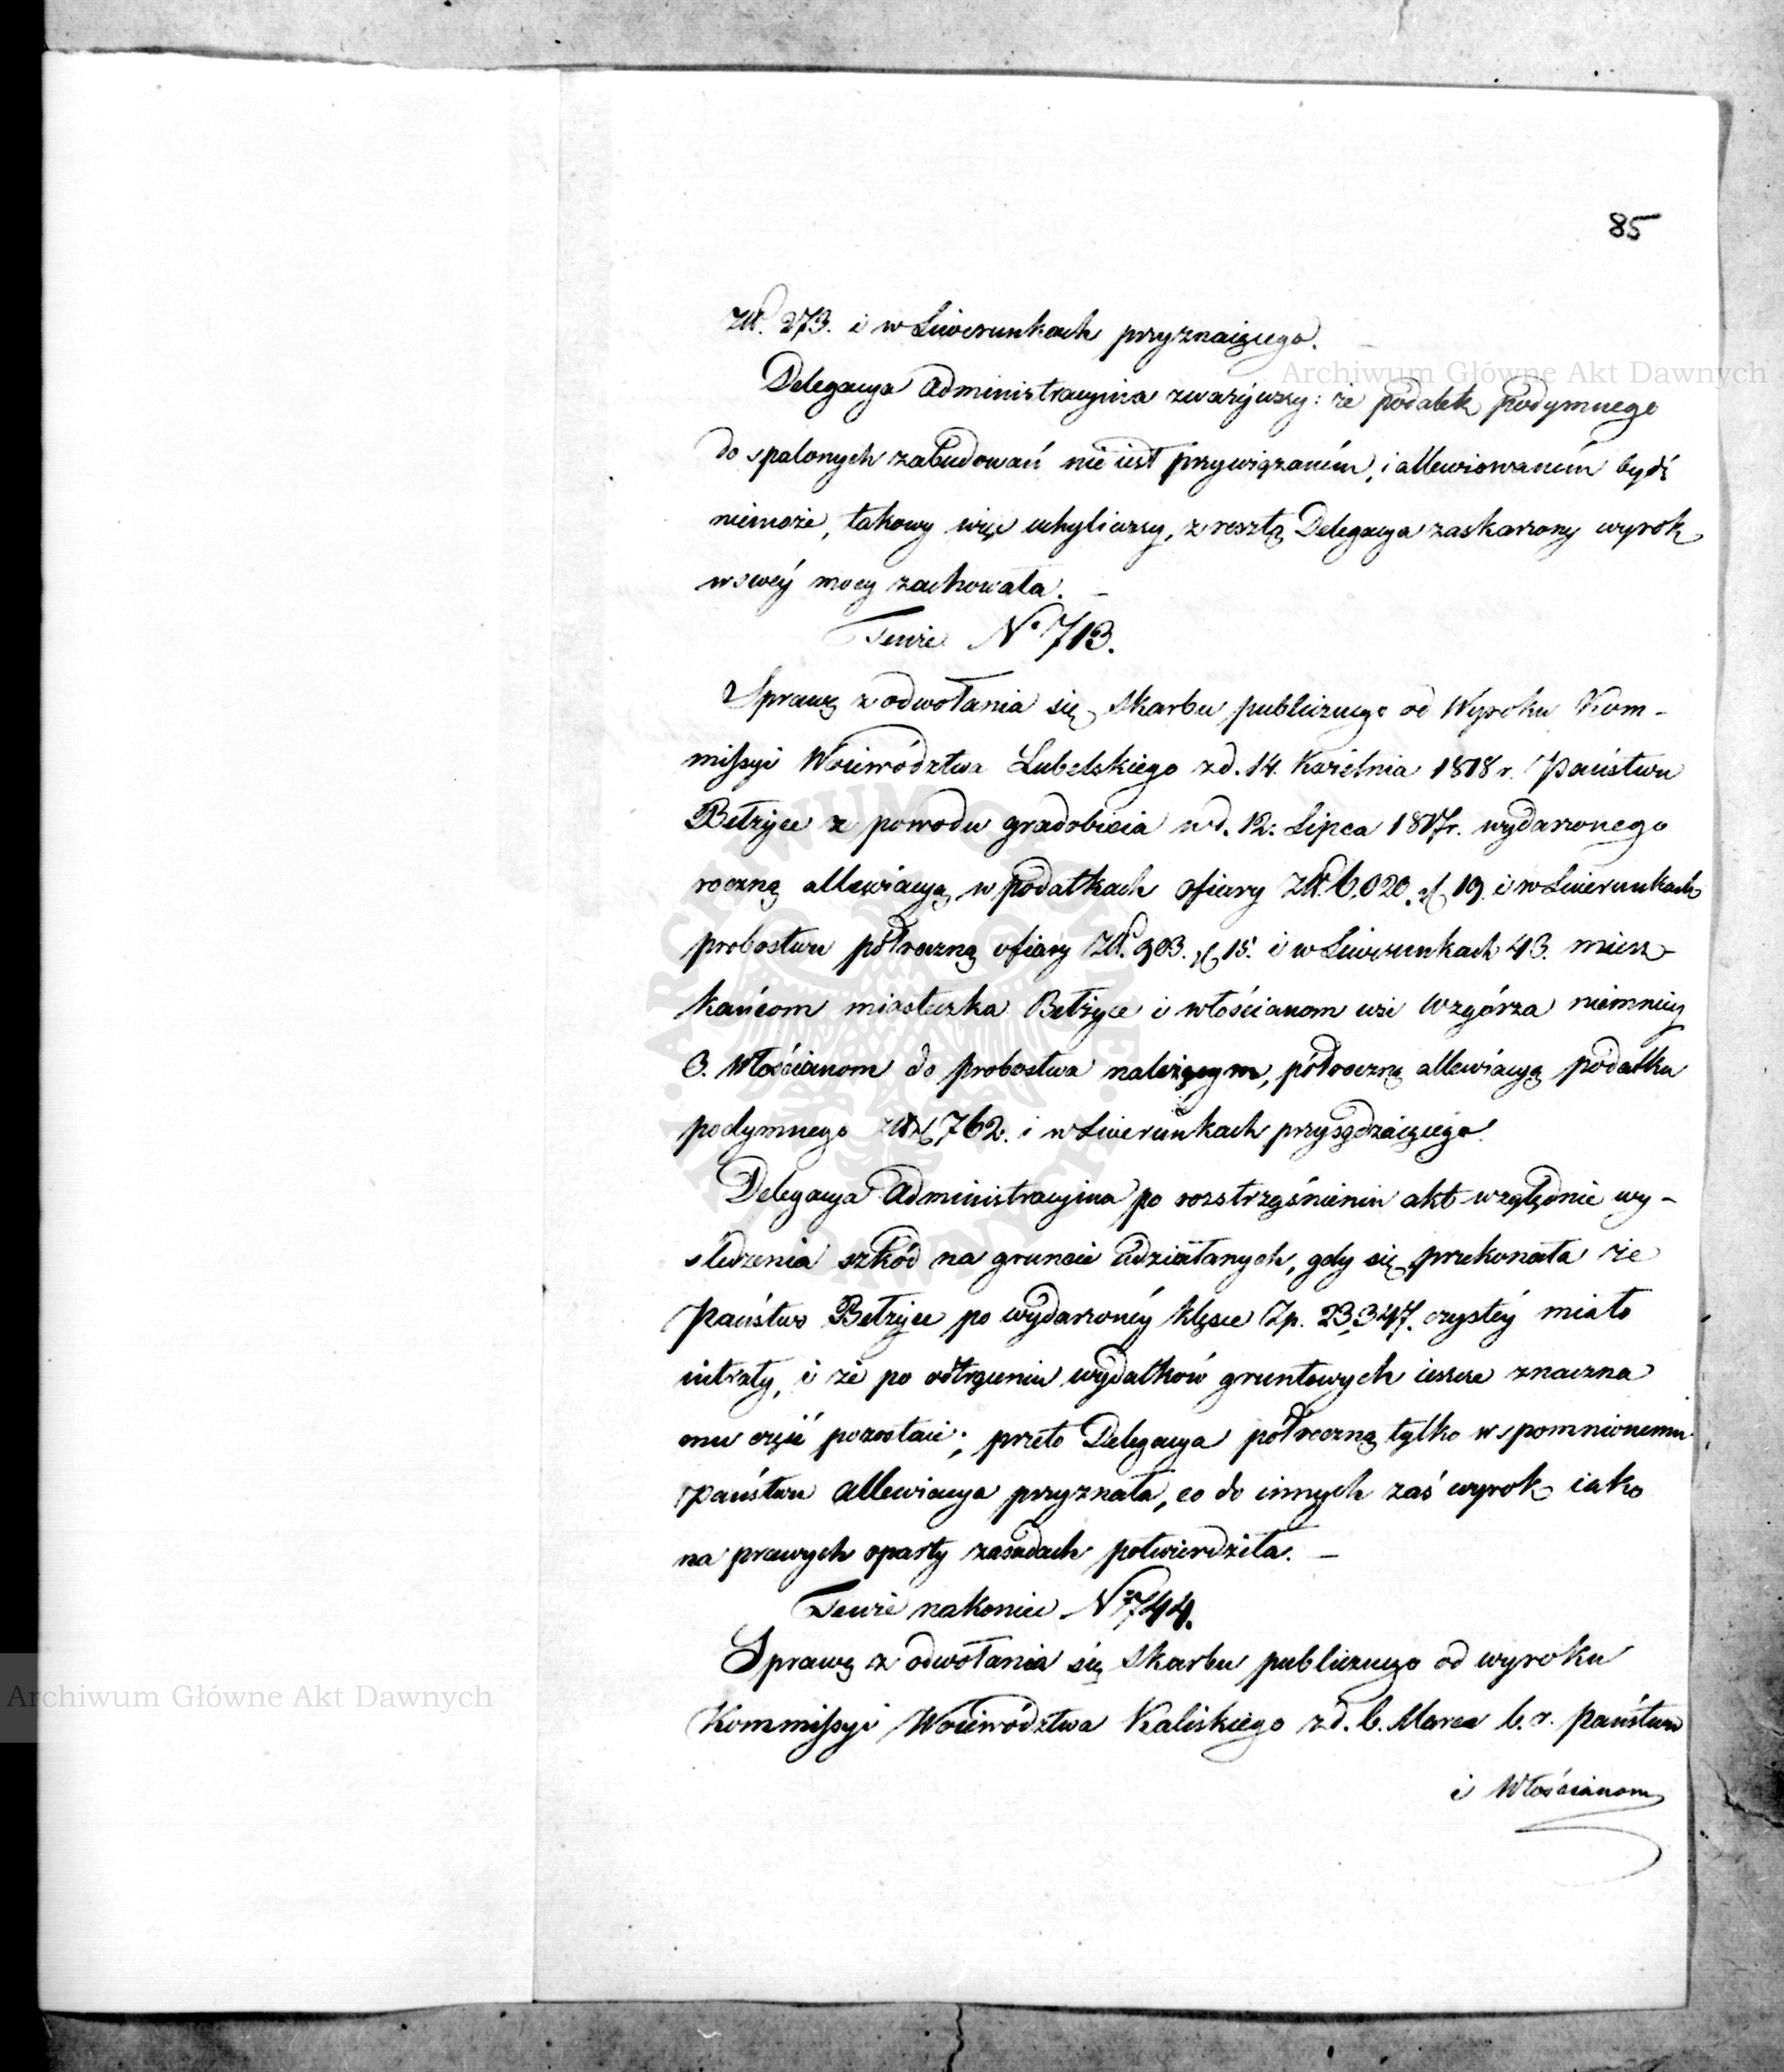 85
złł. 273. i w Liwerunkach przyznaiącego.
Delegacya Administracyina zważywszy: że podatek podymnego
do spalonych zabudowań nie iest przywiązanem, i allewiowaném bydź
niemoże, takowy więc uchyliwszy, z resztą Delegacya zaskarżony wyrok
w swéy mocy zachowała. —
Teuże Nº 713.
Sprawę z odwołania się Skarbu publicznego od Wyroku Kom-
missyi Woiewództwa Lubelskiego z d. 14. Kwietnia 1818 r. Państwu
Bełżyce z powodu gradobicia w d. 12. Lipca 1817r. wydarzonego
roczną allewiacyą w podatkach ofiary Złł. 6,020. gr 19. i w Liwerunkach
probostwu półroczną ofiary Złł. 903. gr 15. i w Liwerunkach 43. miesz-
kańcom miasteczka Bełżyce i włościanom wsi Wzgórza niemniey
3. Włościanom do probostwa należącym, półroczną allewiacyą podatku
podymnego 762. i w Liwerunkach przysądzaiącego.
Delegacya Administracyina po rozstrząśnieniu akt względnie wy-
śledzenia szkód na gruncie udziałanych, gdy się przekonała że
Państwo Bełżyce po wydarzonéy klęsce Zp. 23,347. czystéy miało
intraty, i że po odtrąceniu wydatków gruntowych ieszcze znaczna
mu część pozostaie; przeto Delegacya półroczną tylko wspomnionemu
Państwu allewiacya przyznała, co do innych zaś wyrok iako
na prawych oparty zasadach potwierdziła. —
Teuże nakoniec Nº 744.
Sprawę z odwołania się Skarbu publicznego od wyroku
Kommissyi Woiewództwa Kaliskiego z d. 6. Marca b. r. Państwu
i Włościanom
Archiwum Główne Akt Dawnych
Archiwum Główne Akt Dawnych
ARCHIWUM GŁÓWNE AKT DAWNYCH